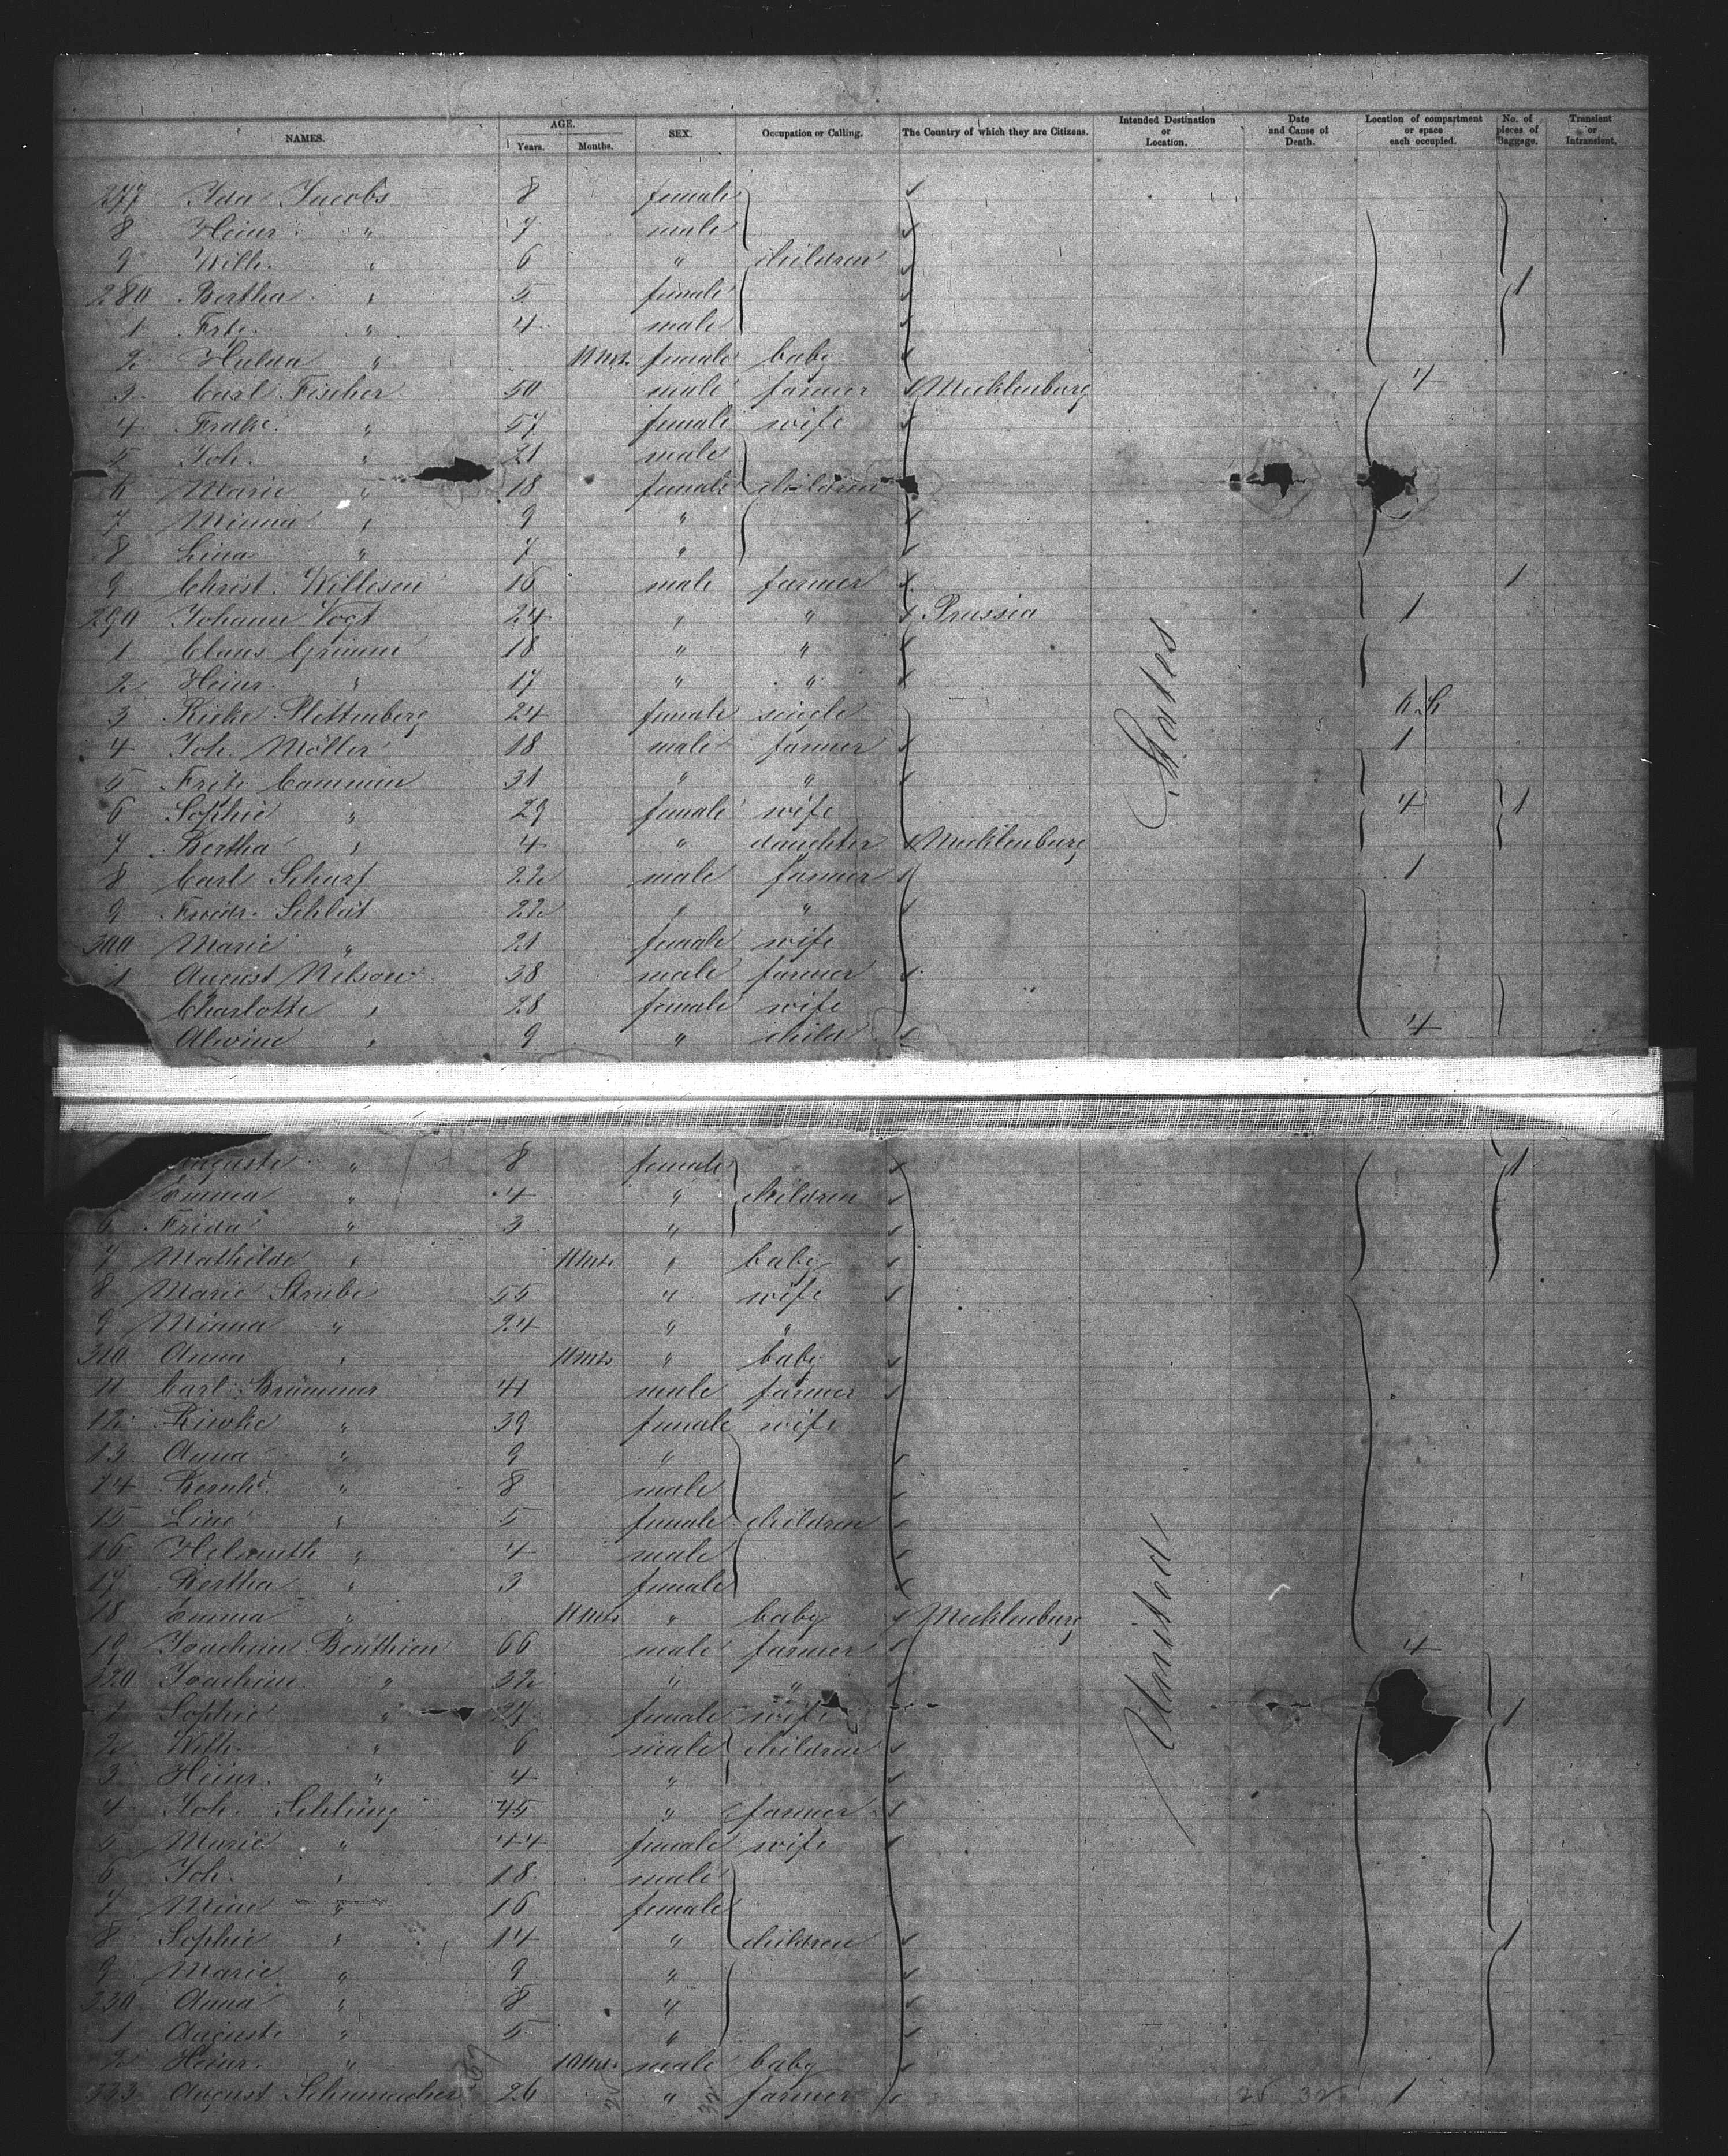 NAMES. AGE. Years. Months. SEX. Occupation or Calling. The Country of which they are Citizens. Intended Destination or Location. Date and Cause of Death. Location of compartment or space each occupied. No. of pieces of Baggage. Transient or Intransient.
277 Ida Jacobs 8 female
8 Heinr. " 7 male
9 Wilh. " 6 " children
280 Bertha " 5 female 1
1 Fritz " 4 male
2 Hulda " 11 mts. female baby
3 Carl Fischer 50 male farmer Mecklenburg 4
4 Fredke. " 57 female wife
5 Joh. " 21 male
6 Marie " 18 female children
7 Minna " 9 "
8 Lina " 7 "
9 Christ. Willesen 16 male farmer 1
290 Johann Vogt 24 " " Prussia 1
1 Claus Grimm 18 " "
2 Heinr. " 17 " "
3 Rieke Plettenberg 24 female single 6
4 Joh. Möller 18 male farmer 1
5 Fritz Cammin 31 " "
6 Sophie " 29 female wife 4 1
7 Bertha " 4 " daughter Mecklenburg
8 Carl Scharf 22 male farmer 1
9 Friedr. 22 " "
300 Marie " 21 female wife
1 August Nelson 38 male farmer
Charlotte " 28 female wife
Alwine " 9 " child 4
Auguste " 8 female 1
Emma " 4 " children
6 Frida " 3 "
7 Mathilde " 11 mts. " baby
8 Marie Strube 55 " wife
9 Minna " 24 " "
310 Anna " 11 mts " baby
11 Carl Brümmer 41 male farmer
12 " 39 female wife
13 Anna " 9 "
14 Bernh. " 8 male
15 Line " 5 female children
16 Helmuth " 4 male
17 Bertha " 3 female
18 Emma " 11 mts " baby Mecklenburg
19 Joachim Benthien 66 male farmer 4
320 Joachim " 32 " "
1 Sophie " female wife 1
2 Wilh. " 6 male children
3 Heinr. " 4 "
4 Joh. Schling 45 " farmer
5 Marie " 44 female wife
6 Joh. " 18 male
7 Mine " 16 female
8 Sophie " 14 " children 1
9 Marie " 9 "
330 Anna " 8 "
1 Auguste " 5 "
2 Heinr. " 10 mts. male baby
333 August Schumacher 26 " farmer 25 32 1
United States